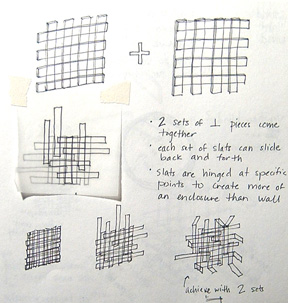 • 2 sets of ⊥ pieces come
together
• each set of slats can slide
back and forth
• slats are hinged at specific
points to create more of
an enclosure than wall
achieve with 2 sets